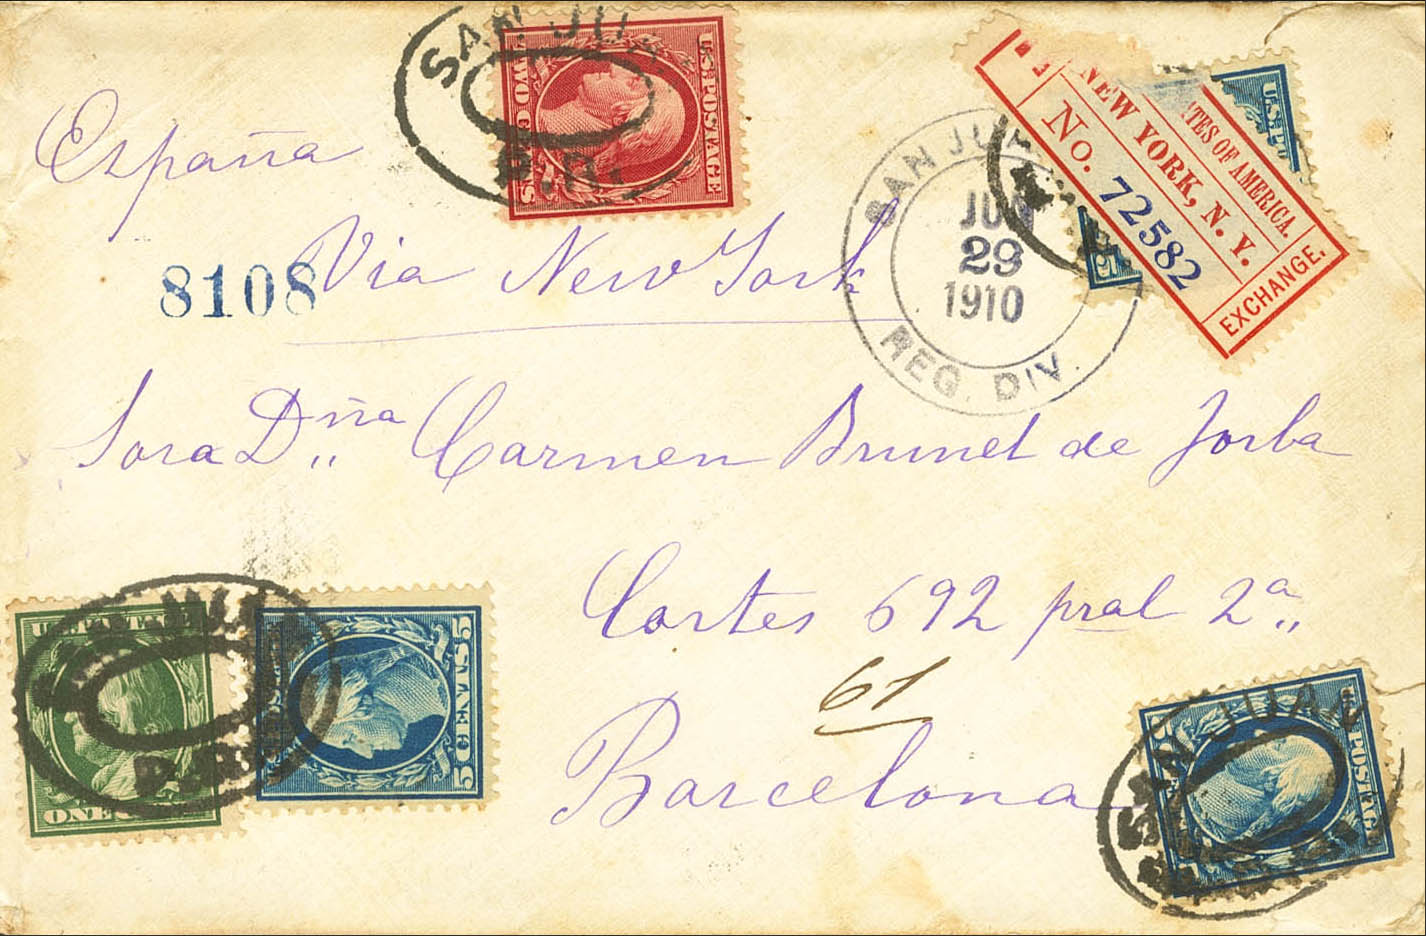 SAN JUAN
P.R.
U.S. POSTAGE
TWO CENTS
España
Via New York
8108
SAN JUAN
JUN
29
1910
REG. DIV.
TES OF AMERICA.
NEW YORK, N. Y.
No. 72582
EXCHANGE.
U.S. PO
Sora Dña Carmen Brunet de Jorba
Cortes 692 pral 2a
61
Barcelona
U.S. POSTAGE
ONE
JUAN
P.R.
5 CENTS 5
SAN JUAN
POSTAGE